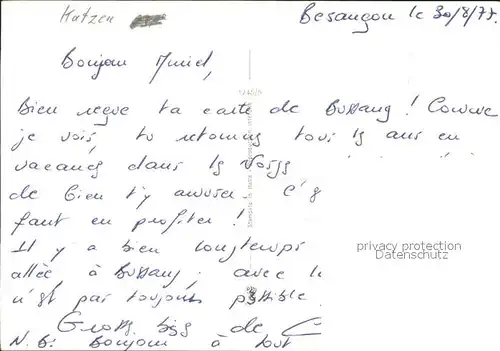 Katzen
Besançon le 30/8/77.
Bonjour Muriel,
Bien reçue ta carte de Bussang ! Comme
je vois, tu retournes tous ls ans en
vacances dans ls Vosges
de bien t'y amuser. C'
faut en profiter !
Il y a bien longtemps
allée à Bussang, avec l
n'est pas toujours possible
privacy protection
Datenschutz
Gross bises de C
N.B. Bonjour à tout